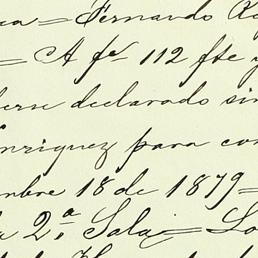 ca = Fernando
= A fs 112 fte y
berse declarado sin
Enriquez para con
embre 18 de 1879 =
la 2ª. Sala = Lo